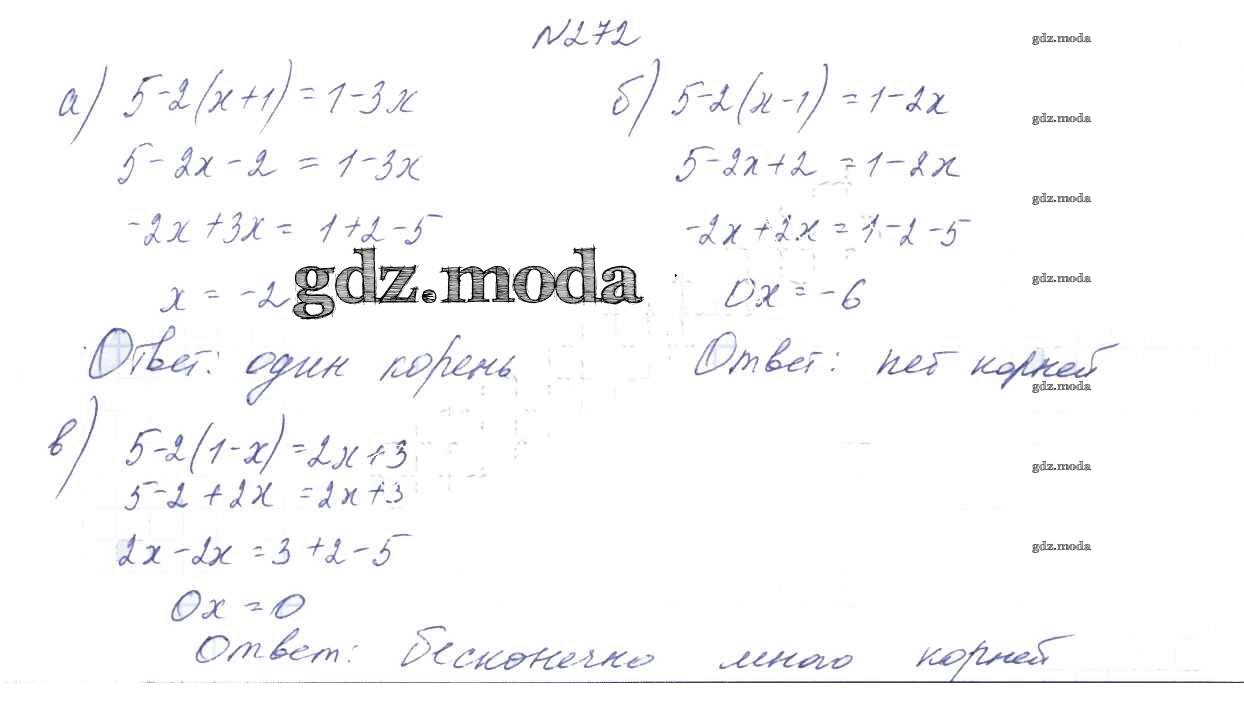 N272
gdz.moda
а) 5-2(x+1)=1-3x
б) 5-2(x-1)=1-2x
gdz.moda
5-2x-2=1-3x
5-2x+2=1-2x
gdz.moda
-2x+3x=1+2-5
-2x+2x=1-2-5
gdz.moda
x=-2
gdz.moda
0x=-6
Ответ: один корень
Ответ: нет корней
gdz.moda
в) 5-2(1-x)=2x+3
gdz.moda
5-2+2x=2x+3
2x-2x=3+2-5
gdz.moda
0x=0
Ответ: бесконечно много корней